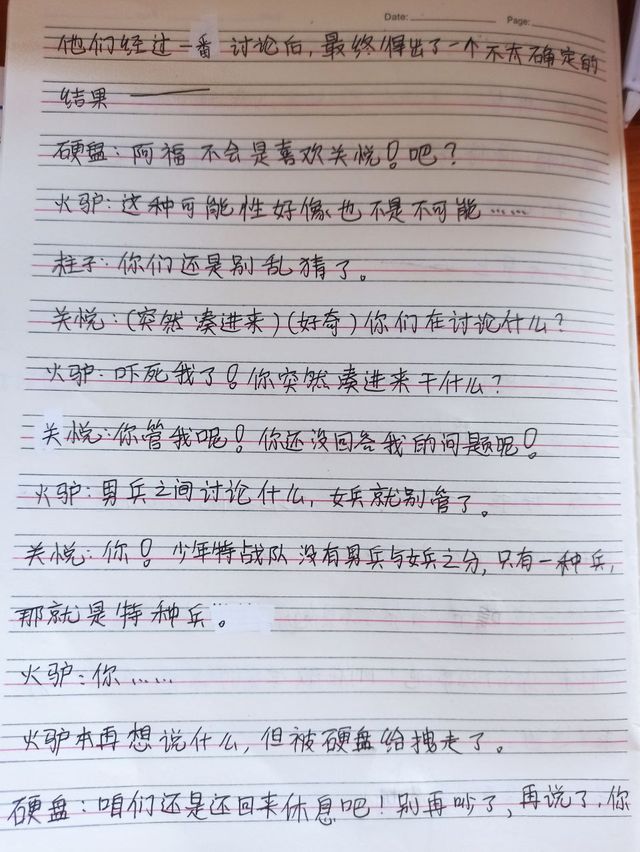 Date: Page:
他们经过一番讨论后,最终得出了一个不太确定的
结果——
硬盘:阿福不会是喜欢关悦!吧?
火驴:这种可能性好像也不是不可能……
柱子:你们还是别乱猜了。
关悦:(突然凑进来)(好奇)你们在讨论什么?
火驴:吓死我了!你突然凑进来干什么?
关悦:你管我呢!你还没回答我的问题呢!
火驴:男兵之间讨论什么,女兵就别管了。
关悦:你!少年特战队没有男兵与女兵之分,只有一种兵,
那就是特种兵。
火驴:你……
火驴本再想说什么,但被硬盘给拽走了。
硬盘:咱们还是还回来休息吧!别再吵了,再说了,你